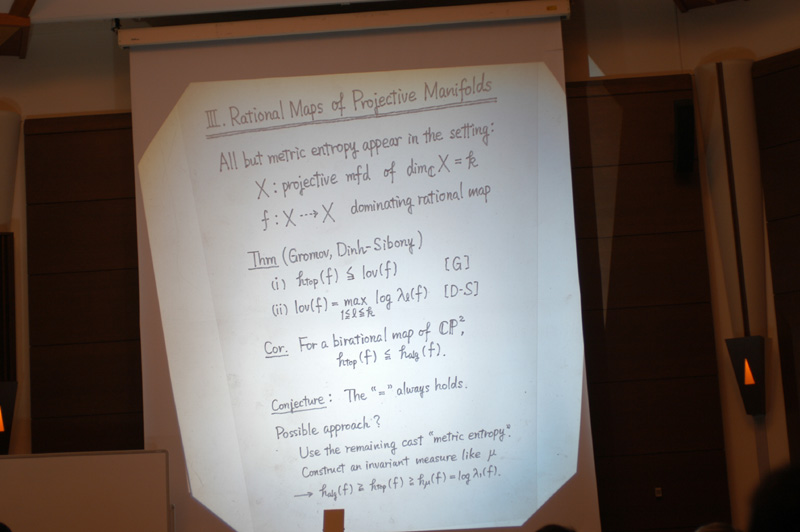 III. Rational Maps of Projective Manifolds
All but metric entropy appear in the setting:
X : projective mfd of dim_ℂ X = k
f : X ⇢ X dominating rational map
Thm (Gromov, Dinh-Sibony)
(i) h_Top(f) ≦ lov(f) [G]
(ii) lov(f) = max_{1≦ℓ≦k} log λ_ℓ(f) [D-S]
Cor. For a birational map of ℂℙ²,
h_Top(f) ≦ h_alg(f).
Conjecture : The "=" always holds.
Possible approach?
Use the remaining cast "metric entropy".
Construct an invariant measure like μ
→ h_alg(f) ≧ h_Top(f) ≧ h_μ(f) = log λ₁(f).